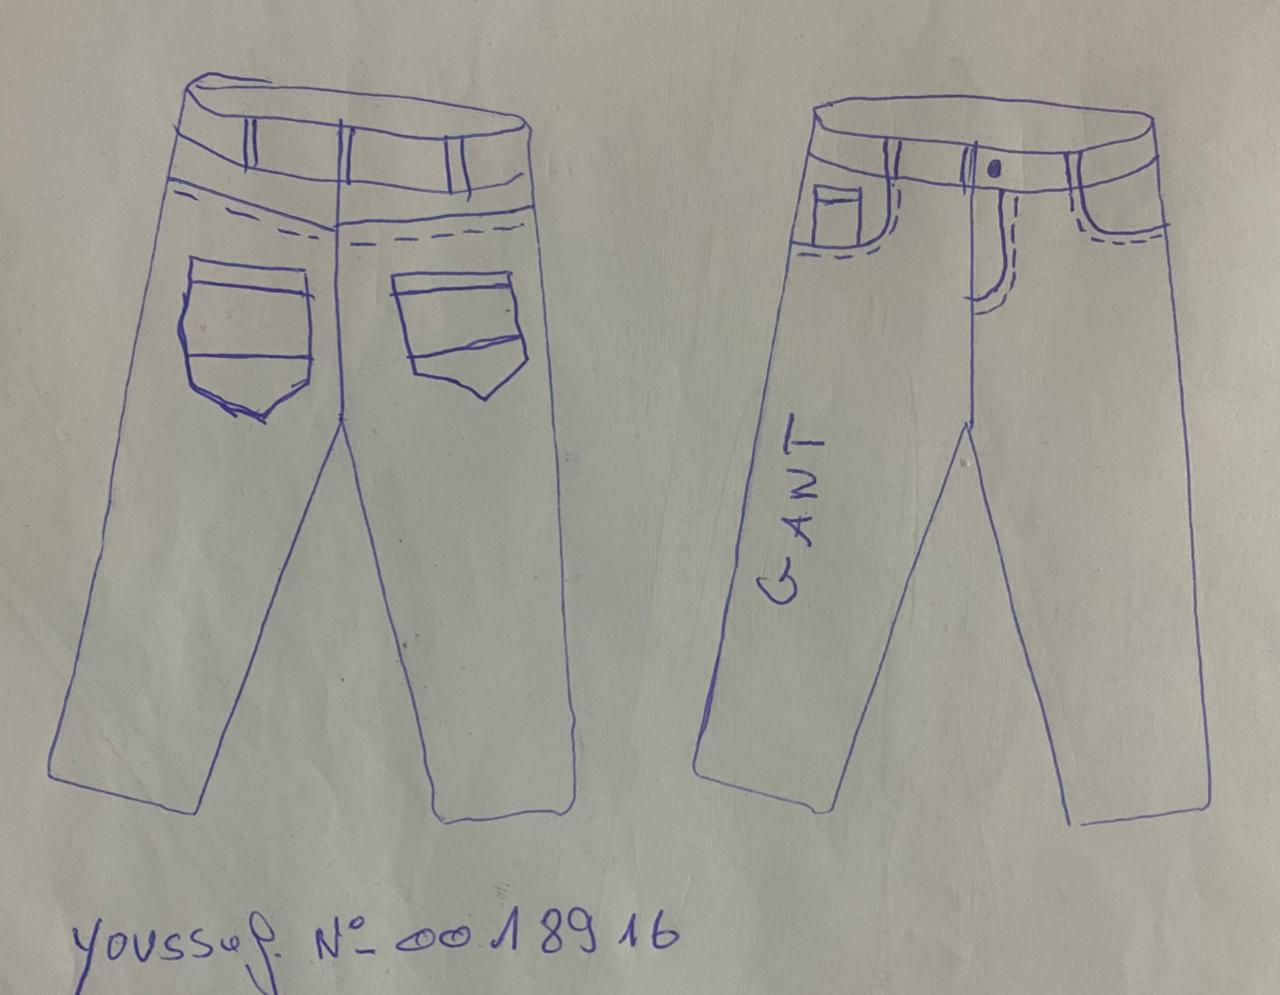 GANT
Youssef. N° 0018916